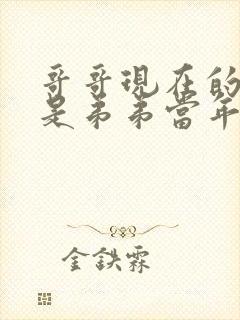 哥哥現在的
是弟弟當年
金鉄霖